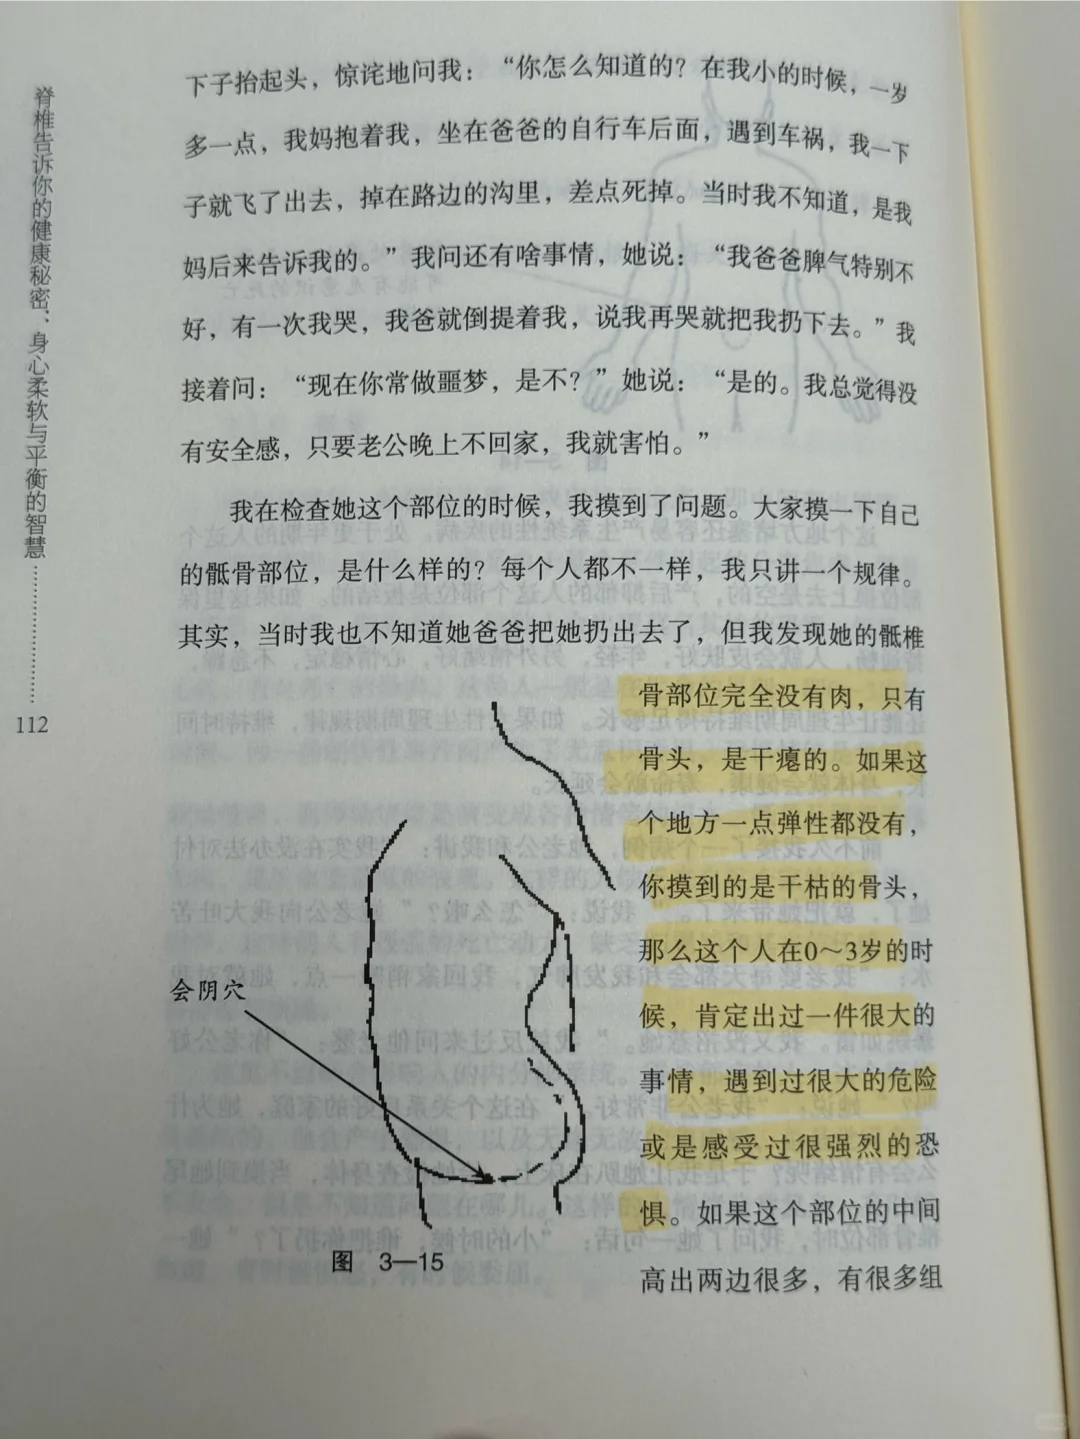 脊椎告诉你的健康秘密：身心柔软与平衡的智慧
112
下子抬起头，惊诧地问我：“你怎么知道的？在我小的时候，一岁
多一点，我妈抱着我，坐在爸爸的自行车后面，遇到车祸，我一下
子就飞了出去，掉在路边的沟里，差点死掉。当时我不知道，是我
妈后来告诉我的。”我问还有啥事情，她说：“我爸爸脾气特别不
好，有一次我哭，我爸就倒提着我，说我再哭就把我扔下去。”我
接着问：“现在你常做噩梦，是不？”她说：“是的。我总觉得没
有安全感，只要老公晚上不回家，我就害怕。”
我在检查她这个部位的时候，我摸到了问题。大家摸一下自己
的骶骨部位，是什么样的？每个人都不一样，我只讲一个规律。
其实，当时我也不知道她爸爸把她扔出去了，但我发现她的骶椎
骨部位完全没有肉，只有
骨头，是干瘪的。如果这
个地方一点弹性都没有，
你摸到的是干枯的骨头，
那么这个人在0～3岁的时
候，肯定出过一件很大的
事情，遇到过很大的危险
或是感受过很强烈的恐
惧。如果这个部位的中间
高出两边很多，有很多组
会阴穴
图 3—15